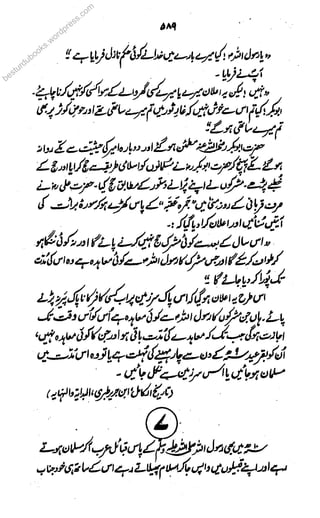 ۵۸۹
"یا رسول اللہ! کیا میرے بارے میں خدا نے کوئی حکم نازل فرمایا ہے؟"
آپؐ نے فرمایا۔
"نہیں! لیکن یہ اعلان میرے یا میرے کسی گھر والے کے سوا کسی کو نہیں کرنا چاہیئے۔
ابوبکر! کیا تم اس سے خوش نہیں کہ غارِ ثور میں تم میرے ساتھی تھے اور حوض کوثر پر بھی
تم میرے ساتھی ہو گے"
حضرت ابوبکر رضی اللہ عنہ مطمئن ہو گئے اور دوبارہ امیر کی حیثیت سے مکے روانہ
ہو گئے۔ مکے پہنچ کر حضرت ابوبکرؓ نے مسلمانوں کو اسلامی طریقے سے حج کرایا اور حج کے
خطبے پڑھے، مشرکوں نے اپنے پرانے دستور کے مطابق حج کیا۔ حضرت علیؓ نے
عرفہ قربانی کے روز منیٰ میں "جمرہ عقبہ" کے پاس کھڑے ہو کر سورہ برأت کی
آیتیں سنائیں اور اعلان کرا دیا گیا کہ:۔
"اس سال کے بعد سے کوئی مشرک حج نہیں کرنے پائے گا اور نہ کوئی ننگا ہو
کر طواف کرے گا اور جس مشرک کا رسول اللہؐ سے کوئی معاہدہ ہے وہ اس کی مدت
تک پورا کر دیا جائے گا"
اس طرح یہ اعلان ہو گیا کہ اس پاک سرزمین پر اب کسی کافر کا ناپاک پیر نہ پڑنے
پائے۔ ہاں جن مشرکوں کا رسول اللہؐ سے کوئی معاہدہ ہے اُس کو اُس وقت تک
اجازت ہو گی جب تک کہ معاہدے کی مدت باقی ہو اور جن کا کوئی معاہدہ نہیں،
اُن کو بقر عید ۹ھ کے دن سے چار مہینے کی مہلت ہے یا تو وہ اس مدت میں
مسلمان ہو جائیں یا اس سرزمین سے نکل جائیں۔
(تاریخ الکامل، ابن جریر طبری، البدایہ والنہایہ)
۷
میں بھی رسول اللہ صلی اللہ علیہ وسلم کے پاس قبائل عرب آ کر مسلمان ہوتے
رہے اور اپنے قبیلوں میں واپس جا کر اسلام پھیلاتے رہے اس کے ساتھ ہی خود جناب
besturdubooks.wordpress.com